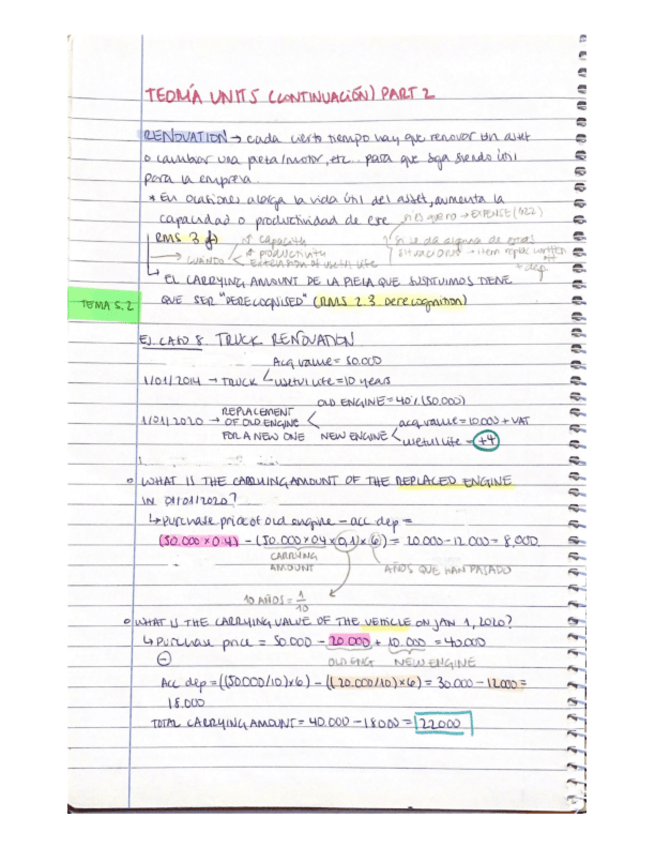 TEORÍA UNITS (CONTINUACIÓN) PART 2
RENOVATION → cada cierto tiempo hay que renovar un asset
o cambiar una pieza/motor, etc... para que siga siendo útil
para la empresa.
* En ocasiones alarga la vida útil del asset, aumenta la
capacidad o productividad de ese
→ EXPENSE (622)
RMS 3 f)
CUANDO
↑ capacity
↑ productivity
Extension of useful life
si se da alguna de estas
situaciones → item replac written
off
+ dep
↳ EL CARRYING AMOUNT DE LA PIEZA QUE SUSTITUIMOS TIENE
QUE SER "DERECOGNISED" (RMS 2.3 Derecognition)
TEMA 5.2
EJ CASO 8. TRUCK RENOVATION
Acq value = 50.000
1/01/2014 → TRUCK
useful life = 10 years
OLD ENGINE = 40% (50.000)
1/01/2020 → REPLACEMENT
OF OLD ENGINE
FOR A NEW ONE
NEW ENGINE
acq value = 10.000 + VAT
useful life = +4
○ WHAT IS THE CARRYING AMOUNT OF THE REPLACED ENGINE
IN 01/01/2020?
↳ Purchase price of old engine - acc dep =
(50.000 x 0.4) - (50.000 x 0.4 x 0,1) x 6) = 20.000 - 12.000 = 8.000
CARRYING
AMOUNT
AÑOS QUE HAN PASADO
10 AÑOS = 1/10
○ WHAT IS THE CARRYING VALUE OF THE VEHICLE ON JAN 1, 2020?
↳ Purchase price = 50.000 - 20.000 + 10.000 = 40.000
⊖ OLD ENG NEW ENGINE
Acc dep = ((50.000/10) x 6) - ((20.000/10) x 6) = 30.000 - 12.000 =
18.000
TOTAL CARRYING AMOUNT = 40.000 - 18000 = 22000